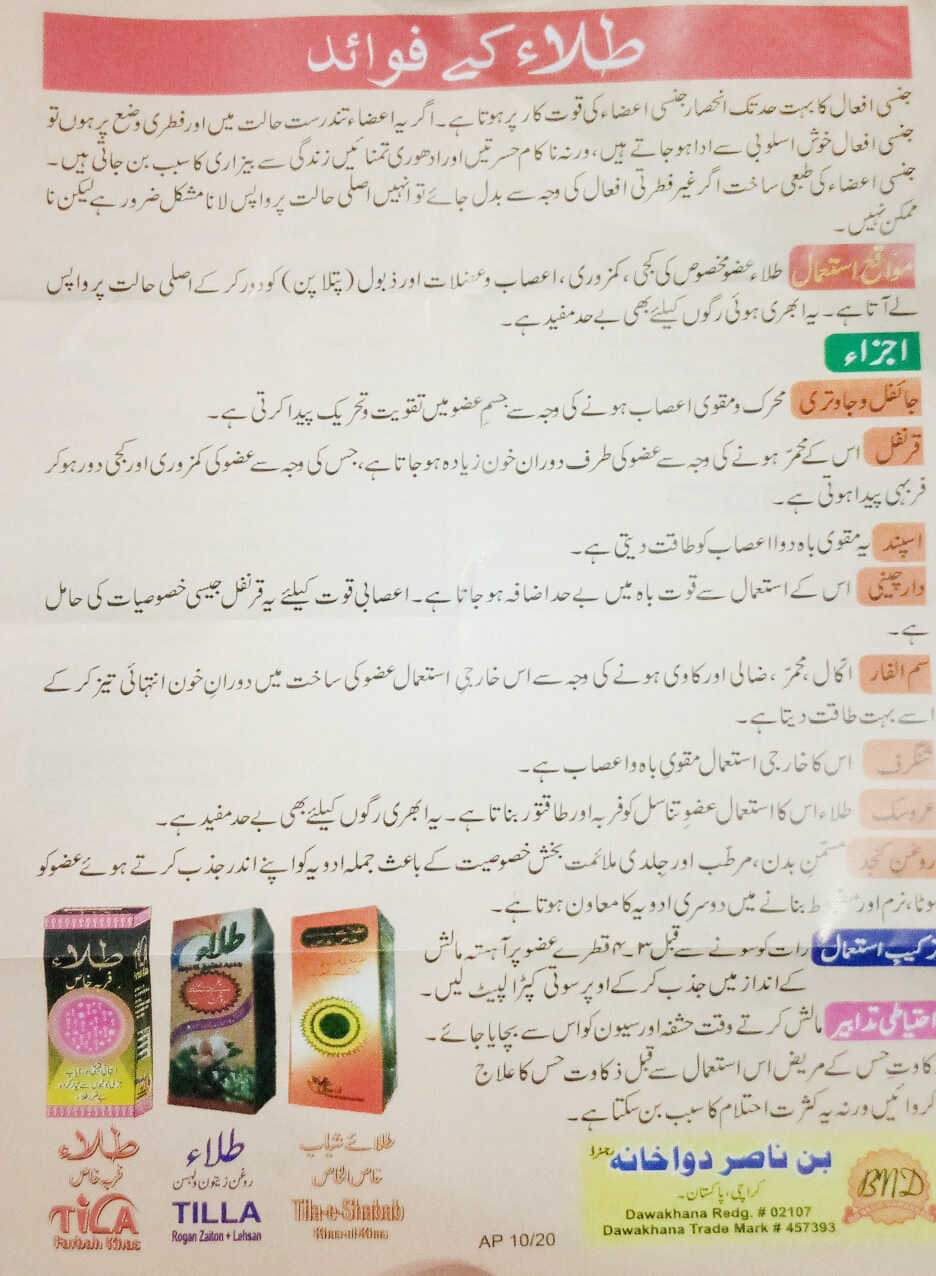 طلاء کے فوائد
جنسی افعال کا بہت حد تک انحصار جنسی اعضاء کی قوت کار پر ہوتا ہے۔ اگر یہ اعضاء تندرست حالت میں اور فطری وضع پر ہوں تو
جنسی افعال خوش اسلوبی سے ادا ہو جاتے ہیں، ورنہ ناکام حسرتیں اور ادھوری تمنائیں زندگی سے بیزاری کا سبب بن جاتی ہیں۔
جنسی اعضاء کی طبعی ساخت اگر غیر فطرتی افعال کی وجہ سے بدل جائے تو انہیں اصلی حالت پر واپس لانا مشکل ضرور ہے لیکن نا
ممکن نہیں۔
مواقع استعمال طلاء عضو مخصوص کی کجی، کمزوری، اعصاب و عضلات اور ذبول (پتلا پن) کو دور کر کے اصلی حالت پر واپس
لے آتا ہے۔ یہ ابھری ہوئی رگوں کیلئے بھی بے حد مفید ہے۔
اجزاء
جائفل و جاوتری محرک و مقوی اعصاب ہونے کی وجہ سے جسمِ عضو میں تقویت و تحریک پیدا کرتی ہے۔
قرنفل اس کے محمرّ ہونے کی وجہ سے عضو کی طرف دوران خون زیادہ ہو جاتا ہے، جس کی وجہ سے عضو کی کمزوری اور کجی دور ہو کر
فربہی پیدا ہوتی ہے۔
اسپند یہ مقوی باہ دوا اعصاب کو طاقت دیتی ہے۔
دارچینی اس کے استعمال سے قوت باہ میں بے حد اضافہ ہو جاتا ہے۔ اعصابی قوت کیلئے یہ قرنفل جیسی خصوصیات کی حامل
ہے۔
سم الفار اکّال، محمرّ، ضالی اور کاوی ہونے کی وجہ سے اس خارجی استعمال عضو کی ساخت میں دورانِ خون انتہائی تیز کر کے
اسے بہت طاقت دیتا ہے۔
شنگرف اس کا خارجی استعمال مقویِ باہ و اعصاب ہے۔
عروسک طلاء اس کا استعمال عضوِ تناسل کو فربہ اور طاقتور بناتا ہے۔ یہ ابھری رگوں کیلئے بھی بے حد مفید ہے۔
روغن کنجد مسمّنِ بدن، مرطّب اور جلدی ملائمت بخش خصوصیت کے باعث جملہ ادویہ کو اپنے اندر جذب کرتے ہوئے عضو کو
موٹا، نرم اور مضبوط بنانے میں دوسری ادویہ کا معاون ہوتا ہے۔
ترکیب استعمال رات کو سونے سے قبل ۳۔۴ قطرے عضو پر آہستہ مالش
کے انداز میں جذب کر کے اوپر سوتی کپڑا لپیٹ لیں۔
احتیاطی تدابیر مالش کرتے وقت حشفہ اور سیون کو اس سے بچایا جائے۔
ذکاوت حس کے مریض اس استعمال سے قبل ذکاوت حس کا علاج
کروائیں ورنہ یہ کثرت احتلام کا سبب بن سکتا ہے۔
طلاء
فربہ خاص
طلاء
طلاء
فربہ خاص
TILA
Farbah Khas
طلاء
روغن زیتون و لہسن
TILLA
Rogan Zaiton + Lehsan
طلائے شباب
خاص الخاص
Tila-e-Shabab
Khas-ul-Khas
AP 10/20
بن ناصر دواخانہ رجسٹرڈ
کراچی، پاکستان۔
Dawakhana Redg. # 02107
Dawakhana Trade Mark # 457393
BND